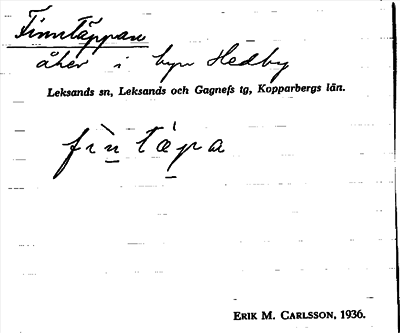 Finntäppan
åker i byn Hedby
Leksands sn, Leksands och Gagnefs tg, Kopparbergs län.
fìn tǽpa
ERIK M. CARLSSON, 1936.